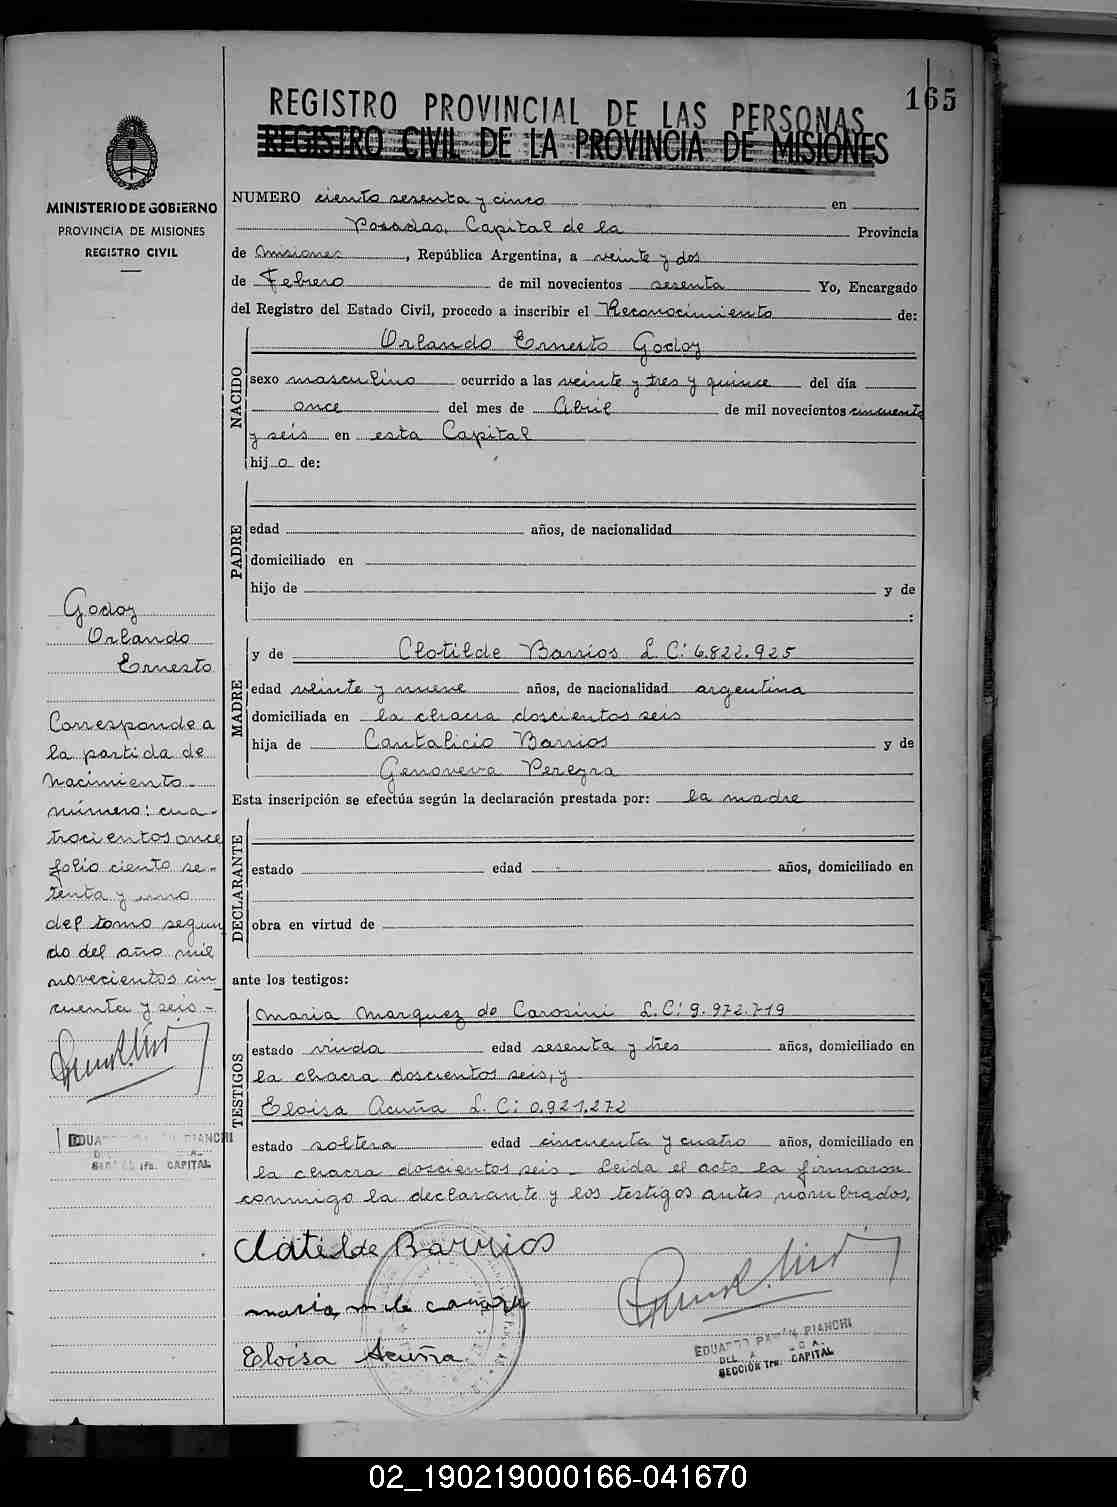 165
REGISTRO PROVINCIAL DE LAS PERSONAS
REGISTRO CIVIL DE LA PROVINCIA DE MISIONES
MINISTERIO DE GOBIERNO
PROVINCIA DE MISIONES
REGISTRO CIVIL
NUMERO ciento sesenta y cinco en
Posadas, Capital de la Provincia
de Misiones, República Argentina, a veinte y dos
de Febrero de mil novecientos sesenta Yo, Encargado
del Registro del Estado Civil, procedo a inscribir el Reconocimiento de:
NACIDO
Orlando Ernesto Godoy
sexo masculino ocurrido a las veinte y tres y quince del día
once del mes de Abril de mil novecientos cincuenta
y seis en esta Capital
hij o de:
PADRE
edad años, de nacionalidad
domiciliado en
hijo de y de
:
MADRE
y de Clotilde Barrios L. C: 6.822.925
edad veinte y nueve años, de nacionalidad argentina
domiciliada en la chacra doscientos seis
hija de Cantalicio Barrios y de
Genoveva Pereyra
Esta inscripción se efectúa según la declaración prestada por: la madre
DECLARANTE
estado edad años, domiciliado en
obra en virtud de
ante los testigos:
TESTIGOS
Maria Marquez de Carosini L.C: 9.972.719
estado viuda edad sesenta y tres años, domiciliado en
la chacra doscientos seis, y
Eloisa Acuña L. C: 0.921.272
estado soltera edad cincuenta y cuatro años, domiciliado en
la chacra doscientos seis - Leida el acta la firmaron
conmigo la declarante y los testigos antes nombrados,
Clotilde Barrios
maria m de
Eloisa Acuña
EDUARDO RAMÓN BIANCHI
SECCIÓN 1ra. CAPITAL
Godoy
Orlando
Ernesto
Corresponde a
la partida de
nacimiento
número: cua-
trocientos once
folio ciento se-
tenta y uno
del tomo segun
do del año mil
novecientos cin_
cuenta y seis -
EDUARDO RAMÓN BIANCHI
1ra. CAPITAL
02_190219000166-041670